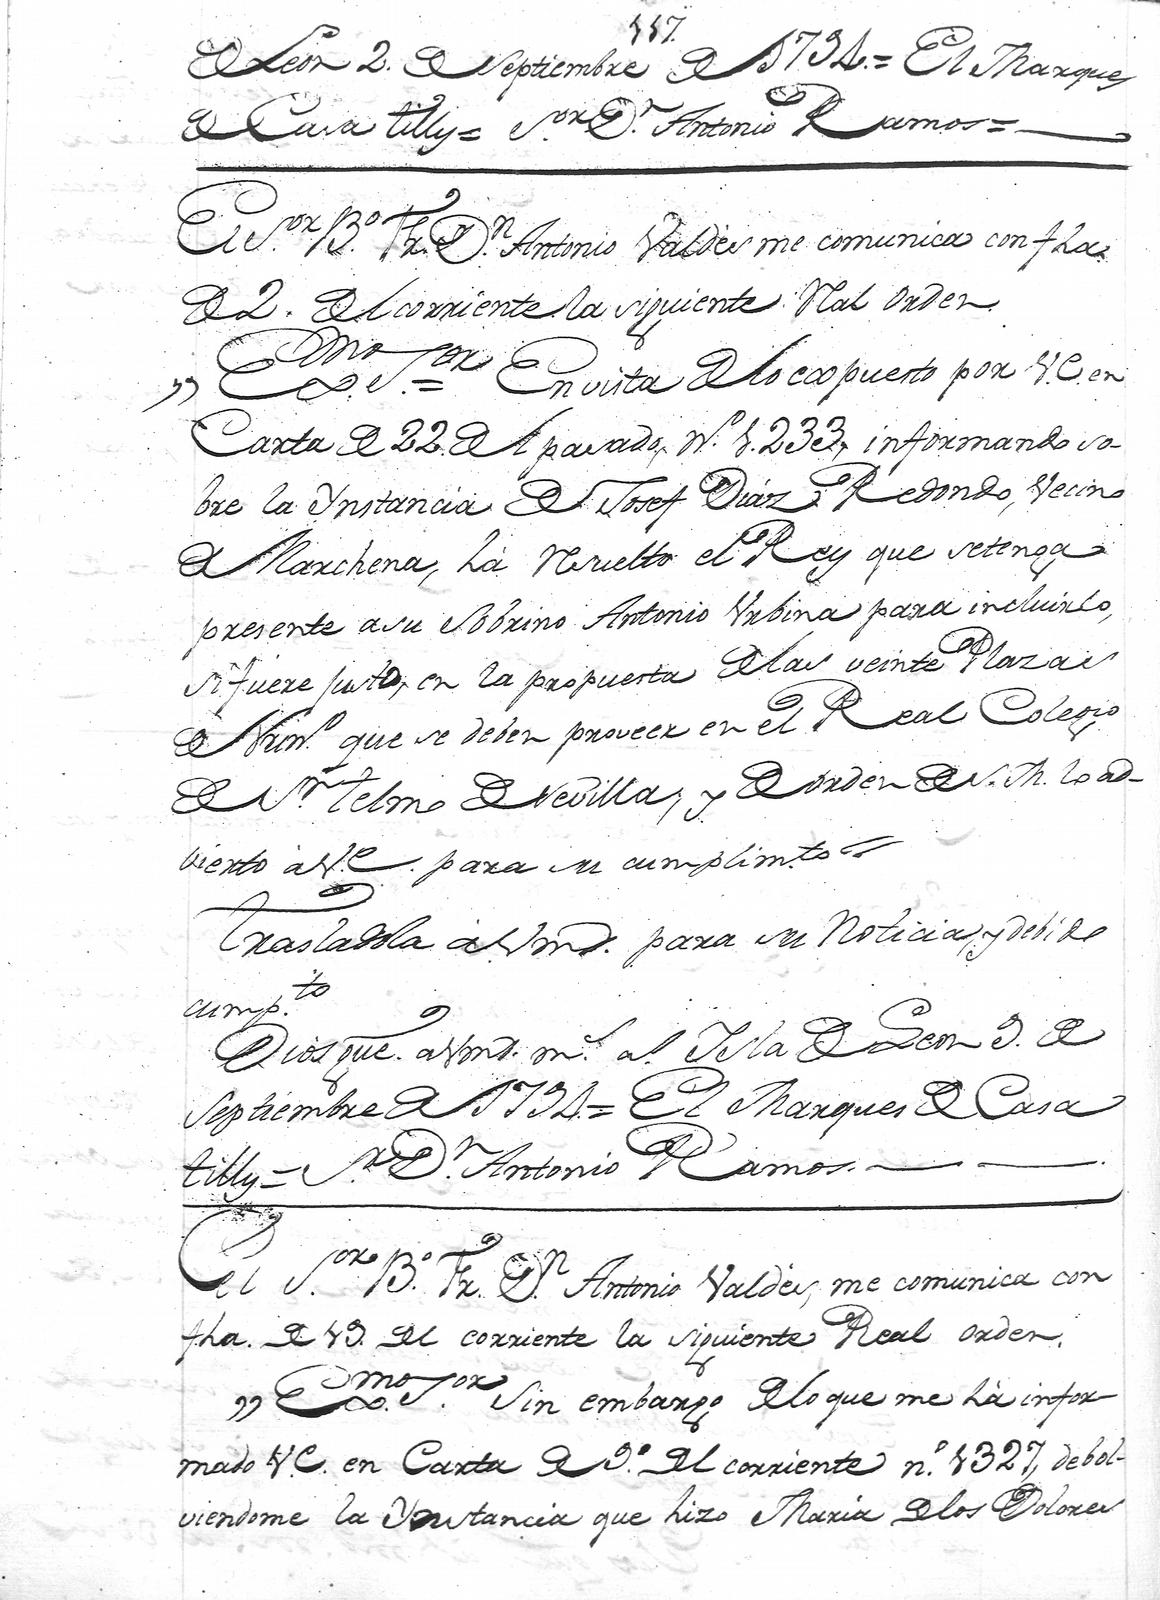 117.
de Leon 2. de Septiembre de 1794.= El Marques
de Casa tilly= S.or D.n Antonio Ramos=
El S.or B.o Fr. D.n Antonio Valdés me comunica con fha.
de 2. del corriente la siguiente Rāl orden.
„ Ex.mo S.or= En vista de lo expuesto por V.E. en
Carta de 22. del pasado, N.o 1.233, informando so-
bre la Ynstancia de Josef Diaz Redondo, Vecino
de Marchena, há Resuelto el Rey que se tenga
presente a su Sobrino Antonio Urbina para incluirlo,
si fuere justo, en la propuesta de las veinte Plazas
de Num.o que se deben proveer en el Real Colegio
de S.n Telmo de Sevilla, y de orden de S. M. lo ad-
vierto à V.E. para su cumplim.to=
Trasladola à Vmd. para su Noticia, y debido
cump.to
Dios gūe. a Vmd. m.s a.s Isla de Leon 3. de
Septiembre de 1794.= El Marques de Casa
tilly= S.r D.n Antonio Ramos.
El S.or B.o Fr. D.n Antonio Valdés, me comunica con
fha. de 19. del corriente la siguiente Real orden.
„ Ex.mo S.or Sin embargo de lo que me há infor-
mado V.E. en Carta de 9.o del corriente n.o 1327, debol-
viendome la Ynstancia que hizo Maria de los Dolores